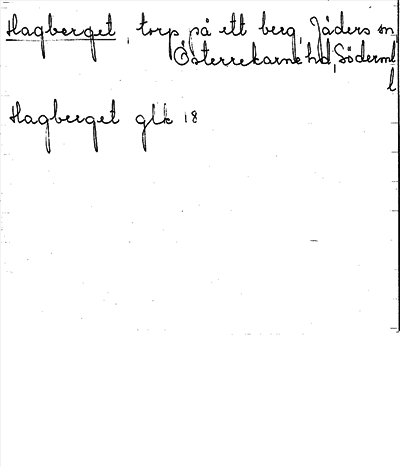 Hagberget, torp på ett berg, Jäders sn
Österrekarne hd, Söderml
l
Hagberget glk 18